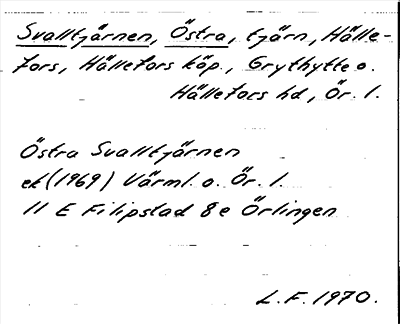 Svalltjärnen, Östra, tjärn, Hälle-
fors, Hällefors köp., Grythytte o.
Hällefors hd, Ör. l.
Östra Svalltjärnen
ek (1969) Värml. o. Ör. l.
11 E Filipstad 8 e Örlingen
L.F. 1970.